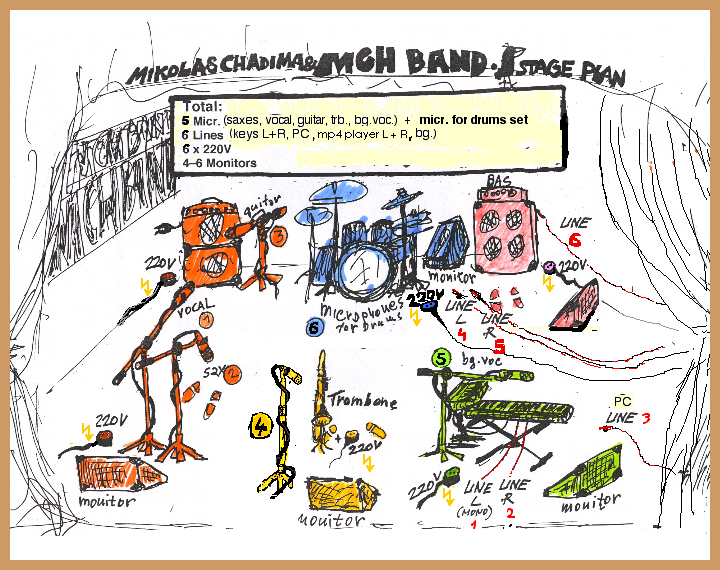 MIKOLAS CHADIMA & MCH BAND. STAGE PLAN
MCH BAND
MCH BAND
Total:
5 Micr. (saxes, vocal, guitar, trb., bg.voc.) + micr. for drums set
6 Lines (keys L+R, PC, mp4 player L+R, bg.)
6 x 220V
4–6 Monitors
BAS
guitar
3
LINE
6
220V
220V
monitor
VOCAL
1
microphones
for drums
6
220V
LINE
L
4
LINE
R
5
5
bg.voc
SAX
2
Trombone
4
+
220V
PC
LINE 3
220V
monitor
monitor
220V
LINE
L
(MONO)
1
LINE
R
2
monitor